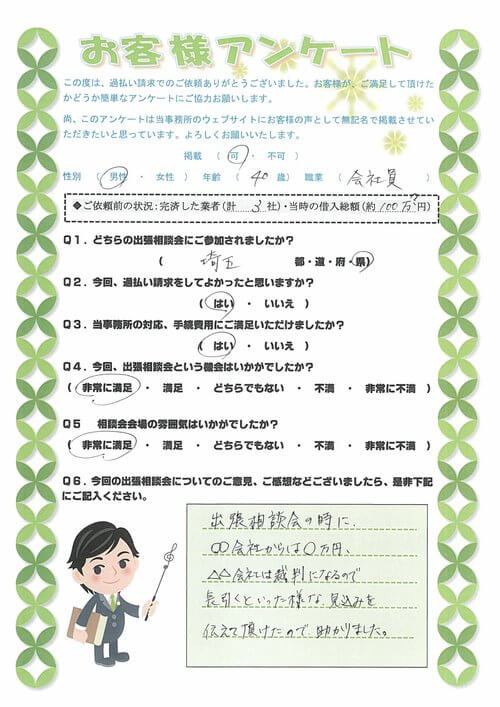 お客様アンケート
この度は、過払い請求でのご依頼ありがとうございました。お客様が、ご満足して頂けた
かどうか簡単なアンケートにご協力お願いします。
尚、このアンケートは当事務所のウェブサイトにお客様の声として無記名で掲載させてい
ただきたいと思っています。よろしくお願いいたします。
掲載 ( 可 ・ 不可 )
性別 ( 男性 ・ 女性 ) 年齢 ( 40 歳) 職業 ( 会社員 )
◆ご依頼前の状況:完済した業者(計 3 社)・当時の借入総額(約 100万? 円)
Q1.どちらの出張相談会にご参加されましたか?
( 埼玉 都・道・府・県)
Q2.今回、過払い請求をしてよかったと思いますか?
( はい ・ いいえ )
Q3.当事務所の対応、手続費用にご満足いただけましたか?
( はい ・ いいえ )
Q4.今回、出張相談会という機会はいかがでしたか?
( 非常に満足 ・ 満足 ・ どちらでもない ・ 不満 ・ 非常に不満 )
Q5 相談会会場の雰囲気はいかがでしたか?
( 非常に満足 ・ 満足 ・ どちらでもない ・ 不満 ・ 非常に不満 )
Q6.今回の出張相談会についてのご意見、ご感想などございましたら、是非下記
にご記入ください。
出張相談会の時に、
〇〇会社からは〇万円、
△△会社は裁判になるので
長引くといった様な見込みを
伝えて頂けたので、助かりました。